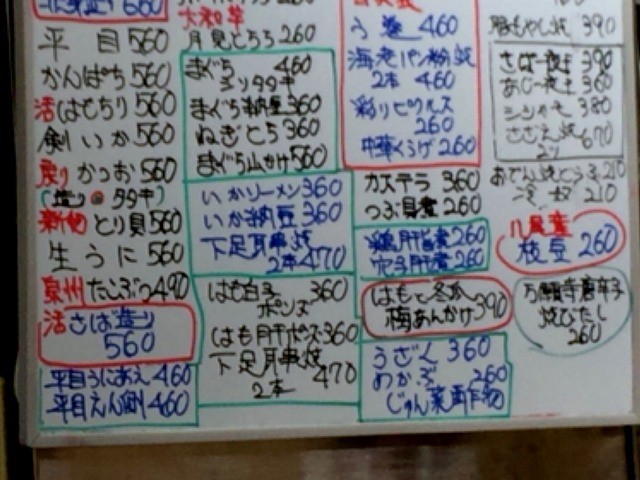 660
平目 560
かんぱち 560
活はまちり 560
剣いか 560
戻りかつお 560
(造り タタキ)
新物 とり貝 560
生うに 560
泉州 たこぶつ 490
活さば造り
560
平目うにあえ 460
平目えん側 460
大和芋
月見とろろ 260
まぐろ 460
ユッケ タタキ
まぐろ納豆 360
ねぎとろ 360
まぐろ山かけ 560
いかソーメン 360
いか納豆 360
下足耳串焼
2本 470
はも白子 360
ポンズ
はも肝ポンズ 360
下足耳串焼
2本 470
う巻 460
海老パン粉焼
2本 460
彩りピクルス
260
中華くらげ 260
カステラ 360
つぶ貝煮 260
鶏肝旨煮 260
穴子肝煮 260
はもと冬瓜
梅あんかけ 390
うざく 360
めかぶ 260
じゅん菜酢の物
豚もやし炒 390
さば一夜干 390
あじ一夜干 360
シシャモ 380
さざえ焼 670
2ケ
おでん焼とうふ 210
冷奴 210
丹尾産
枝豆 260
万願寺唐辛子
焼びたし
260